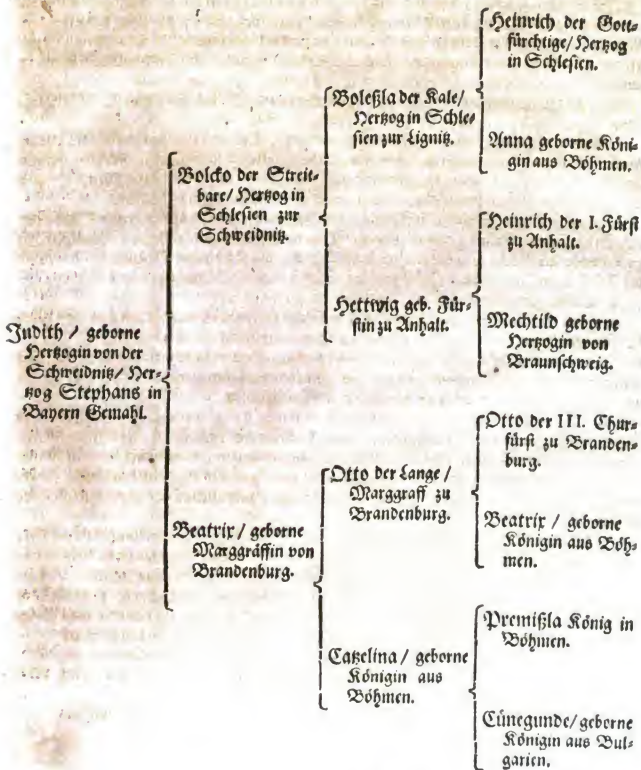 Judith / geborne
Hertzogin von der
Schweidnitz / Her⸗
tzog Stephans in
Bayern Gemahl.
Bolcko der Streit⸗
bare / Hertzog in
Schlesien zur
Schweidnitz.
Beatrix / geborne
Marggräffin von
Brandenburg.
Boleßla der Kale /
Hertzog in Schle⸗
sien zur Lignitz.
Hettwig geb. Für⸗
stin zu Anhalt.
Otto der Lange /
Marggraff zu
Brandenburg.
Catzelina / geborne
Königin aus
Böhmen.
Heinrich der Gott⸗
fürchtige / Hertzog
in Schlesien.
Anna geborne Köni⸗
gin aus Böhmen.
Heinrich der I. Fürst
zu Anhalt.
Mechtild geborne
Hertzogin von
Braunschweig.
Otto der III. Chur⸗
fürst zu Branden⸗
burg.
Beatrix / geborne
Königin aus Böh⸗
men.
Premißla König in
Böhmen.
Cünegunde / geborne
Königin aus Bul⸗
garien.